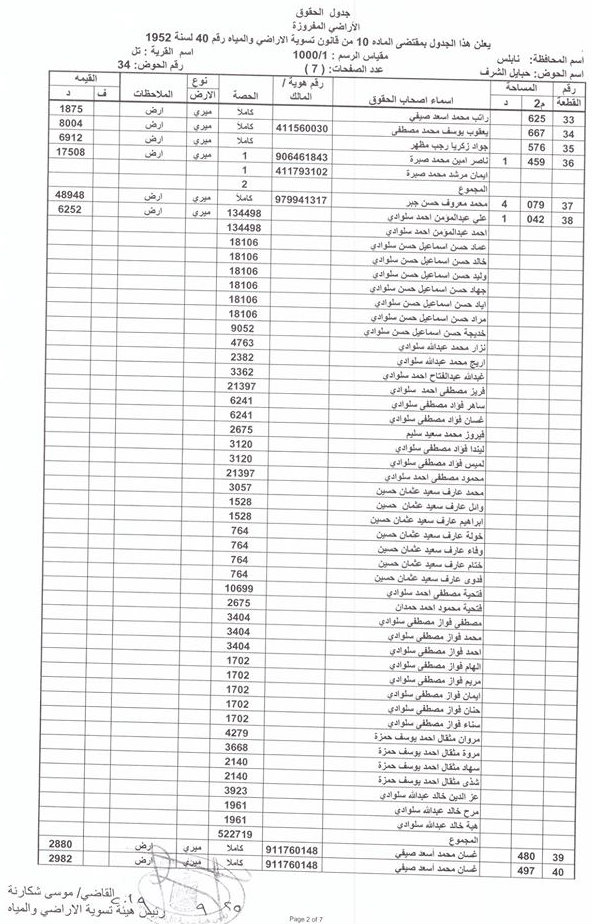 جدول الحقوق
الأراضي المفروزة
يعلن هذا الجدول بمقتضى الماده 10 من قانون تسوية الاراضي والمياه رقم 40 لسنة 1952
اسم المحافظة: نابلس مقياس الرسم : 1000/1 اسم القرية : تل
اسم الحوض: حبايل الشرف عدد الصفحات: ( 7 ) رقم الحوض: 34
رقم القطعة المساحة م2 د اسماء اصحاب الحقوق رقم هوية / المالك الحصة نوع الارض الملاحظات القيمه ف د
33 625 راتب محمد اسعد صيفي كاملا ميري ارض 1875
34 667 يعقوب يوسف محمد مصطفى 411560030 كاملا ميري ارض 8004
35 576 جواد زكريا رجب مظهر كاملا ميري ارض 6912
36 459 1 ناصر امين محمد صبرة 906461843 1 ميري ارض 17508
ايمان مرشد محمد صبرة 411793102 1
المجموع 2
37 079 4 محمد معروف حسن جبر 979941317 كاملا ميري ارض 48948
38 042 1 علي عبدالمؤمن احمد سلوادي 134498 ميري ارض 6252
احمد عبدالمؤمن احمد سلوادي 134498
عماد حسن اسماعيل حسن سلوادي 18106
خالد حسن اسماعيل حسن سلوادي 18106
وليد حسن اسماعيل حسن سلوادي 18106
جهاد حسن اسماعيل حسن سلوادي 18106
اياد حسن اسماعيل حسن سلوادي 18106
مراد حسن اسماعيل حسن سلوادي 18106
خديجة حسن اسماعيل حسن سلوادي 9052
نزار محمد عبدالله سلوادي 4763
اريج محمد عبدالله سلوادي 2382
عبدالله عبدالفتاح احمد سلوادي 3362
فريز مصطفى احمد سلوادي 21397
ساهر فؤاد مصطفى سلوادي 6241
غسان فؤاد مصطفى سلوادي 6241
فيروز محمد سعيد سليم 2675
ليندا فؤاد مصطفى سلوادي 3120
لميس فؤاد مصطفى سلوادي 3120
محمود مصطفى احمد سلوادي 21397
محمد عارف سعيد عثمان حسين 3057
وائل عارف سعيد عثمان حسين 1528
ابراهيم عارف سعيد عثمان حسين 1528
خولة عارف سعيد عثمان حسين 764
وفاء عارف سعيد عثمان حسين 764
ختام عارف سعيد عثمان حسين 764
فدوى عارف سعيد عثمان حسين 764
فتحية مصطفى احمد سلوادي 10699
فتحية محمود احمد حمدان 2675
مصطفى فواز مصطفى سلوادي 3404
محمد فواز مصطفى سلوادي 3404
احمد فواز مصطفى سلوادي 3404
الهام فواز مصطفى سلوادي 1702
مريم فواز مصطفى سلوادي 1702
ايمان فواز مصطفى سلوادي 1702
حنان فواز مصطفى سلوادي 1702
سناء فواز مصطفى سلوادي 1702
مروان مثقال احمد يوسف حمزة 4279
مروة مثقال احمد يوسف حمزة 3668
سهاد مثقال احمد يوسف حمزة 2140
شذى مثقال احمد يوسف حمزة 2140
عز الدين خالد عبدالله سلوادي 3923
مرح خالد عبدالله سلوادي 1961
هبة خالد عبدالله سلوادي 1961
المجموع 522719
39 480 غسان محمد اسعد صيفي 911760148 كاملا ميري ارض 2880
40 497 غسان محمد اسعد صيفي 911760148 كاملا ميري ارض 2982
القاضي/ موسى شكارنة
رئيس هيئة تسوية الاراضي والمياه
Page 2 of 7